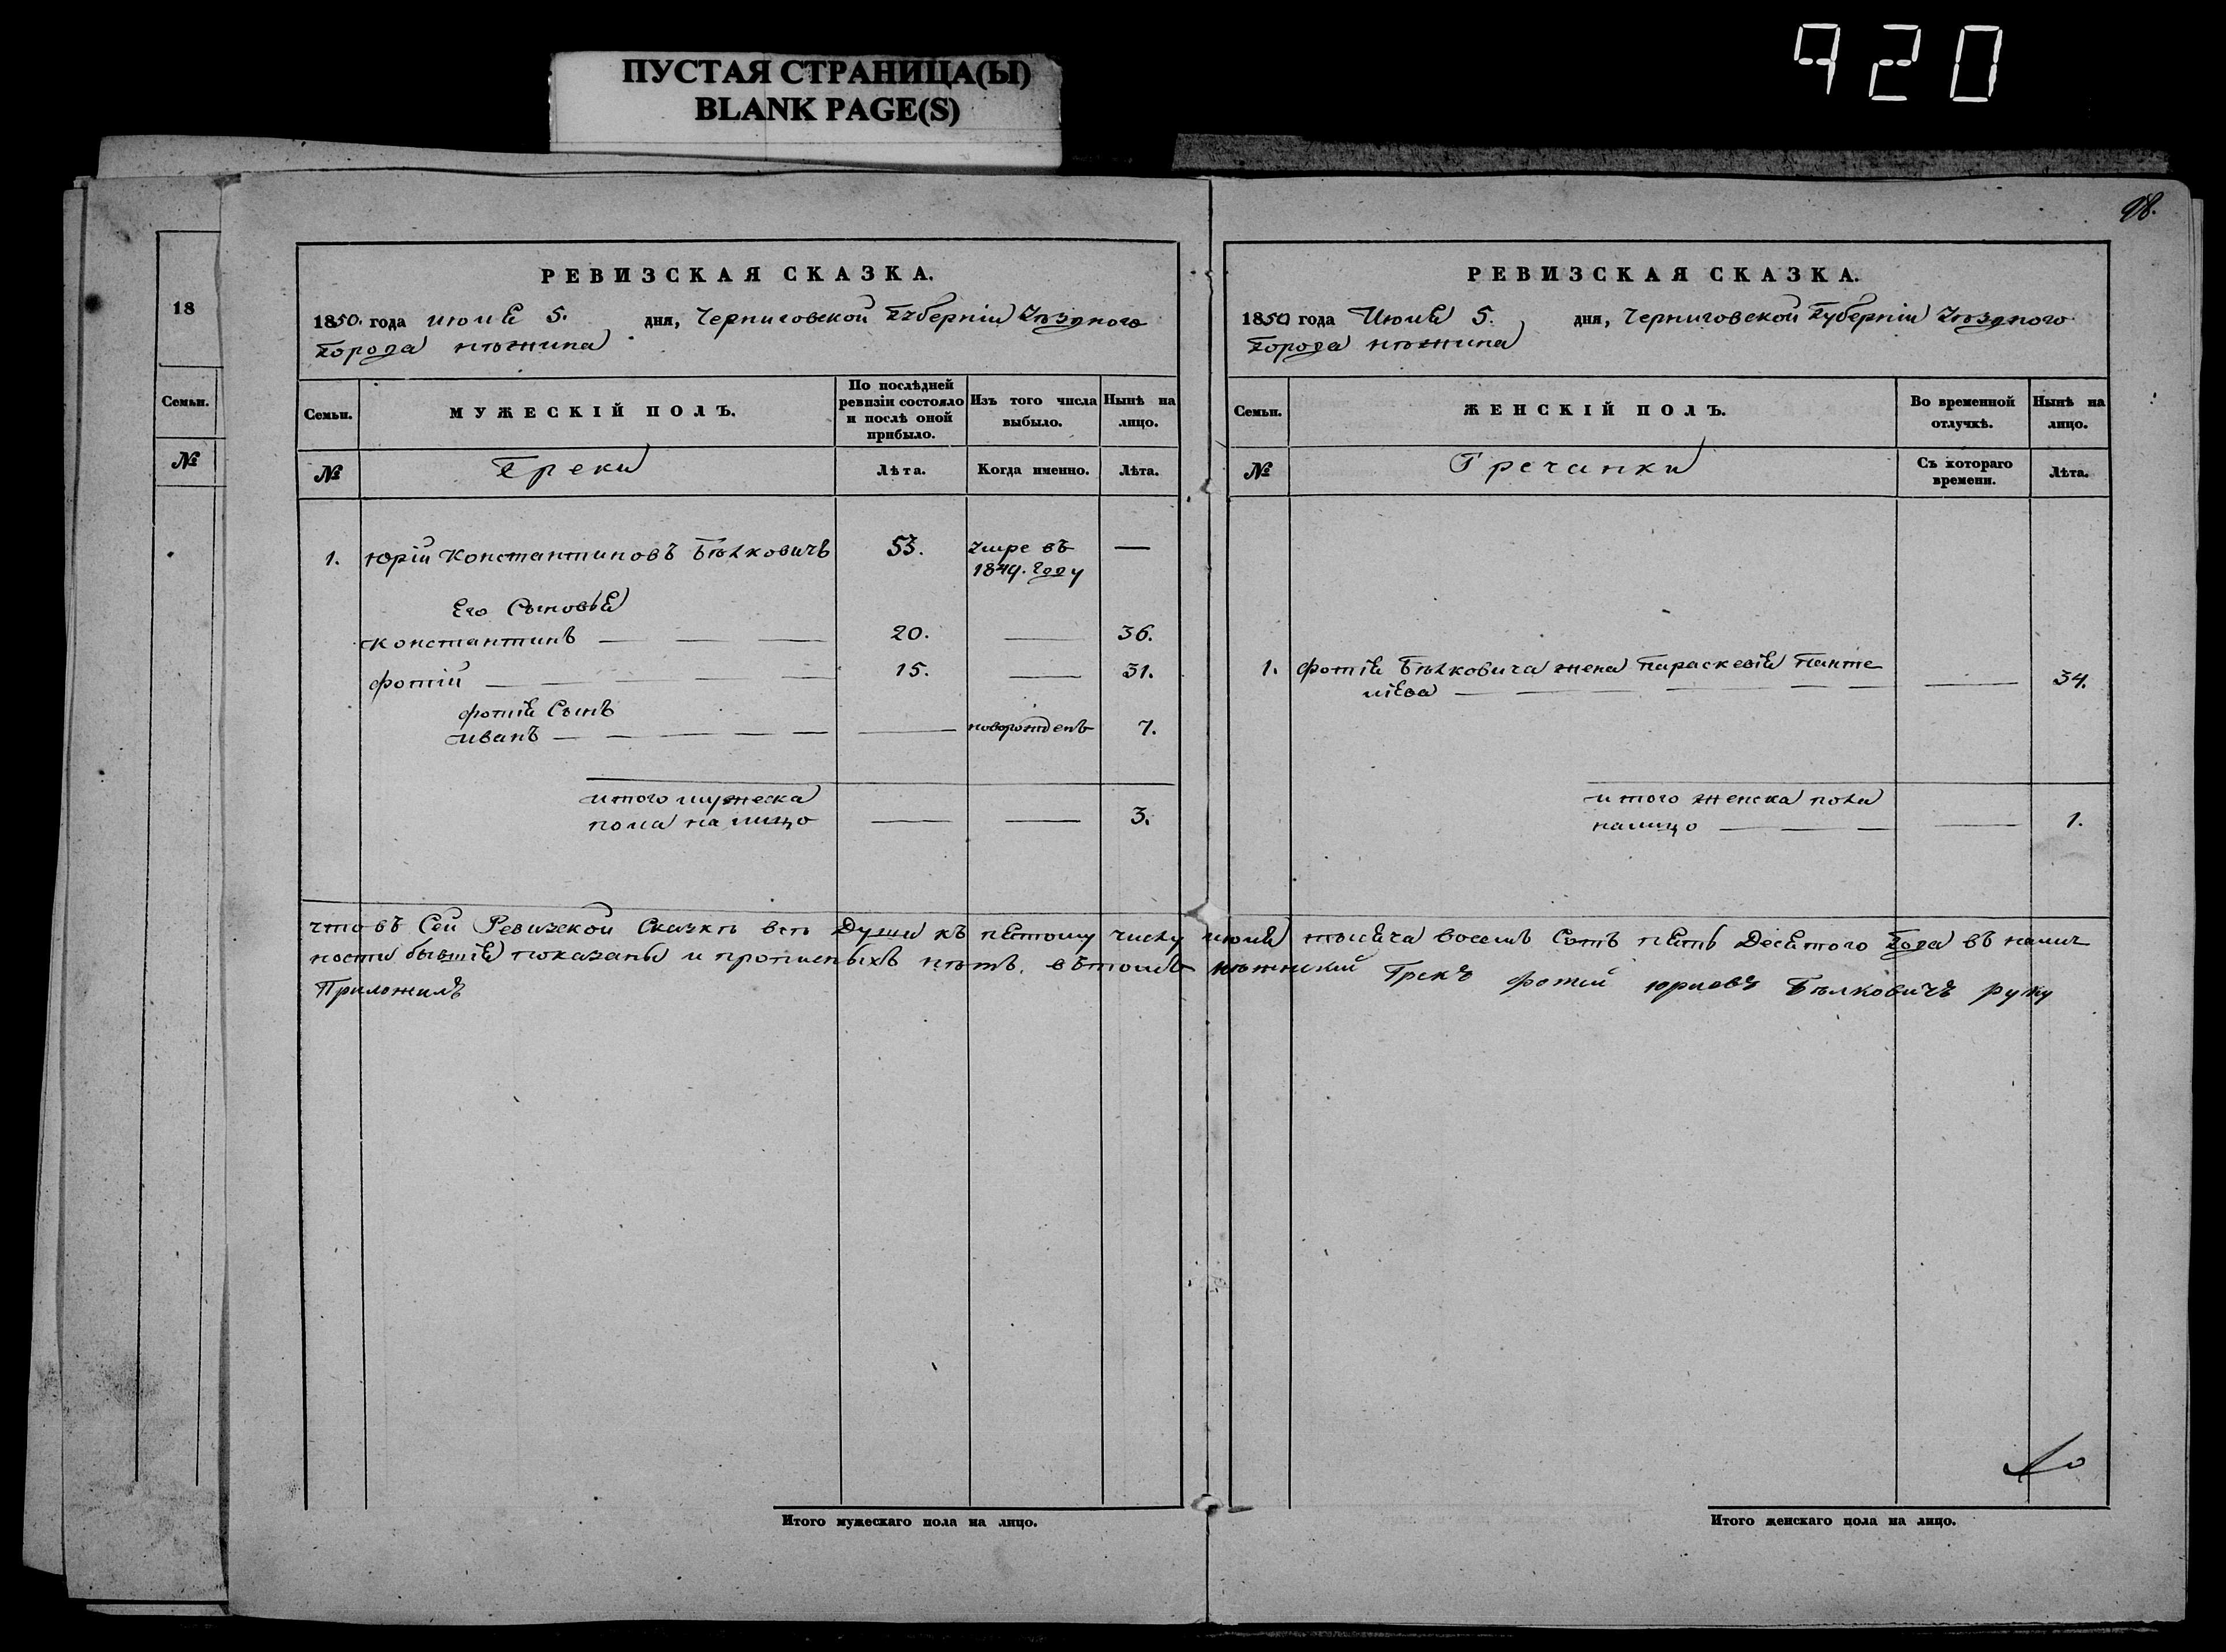 ПУСТАЯ СТРАНИЦА(Ы)
BLANK PAGE(S)
920
98.
18
Семьи.
№
РЕВИЗСКАЯ СКАЗКА.
1850. года июля 5. дня, Черниговской Губерніи Уѣзднаго
Города Нѣжина
Семьи.
МУЖЕСКІЙ ПОЛЪ.
По послѣдней ревизіи состояло и послѣ оной прибыло.
Изъ того числа выбыло.
Нынѣ на лицо.
№
Греки
Лѣта.
Когда именно.
Лѣта.
1. Юрій Константиновъ Бѣлковичъ 53. умре въ —
1849. году
Его Сыновья
Константинъ — — — 20. — 36.
Фотій — — — — 15. — 31.
Фотія Сынъ
Иванъ — — — — — — новорожденъ 7.
итого мужеска
пола на лицо — — 3.
РЕВИЗСКАЯ СКАЗКА.
1850 года Июля 5. дня, Черниговской Губерніи Уѣзднаго
Города Нѣжина
Семьи.
ЖЕНСКІЙ ПОЛЪ.
Во временной отлучкѣ.
Нынѣ на лицо.
№
Гречанки
Съ котораго времени.
Лѣта.
1. Фотія Бѣлковича жена Параскевія Панте
лієва — — — — — — 34.
итого женска пола
налицо — — — — 1.
что въ Сей Ревизской Сказкѣ всѣ Души къ пятому числу июля тысяча восемъ Сотъ пять Десятого Года въ налич
ности бывшія показаны и прописныхъ нѣтъ. въ томъ нѣжинский Грекъ Фотий Юриевъ Бѣлковичъ руку
Приложилъ
Итого мужескаго пола на лицо.
Итого женскаго пола на лицо.